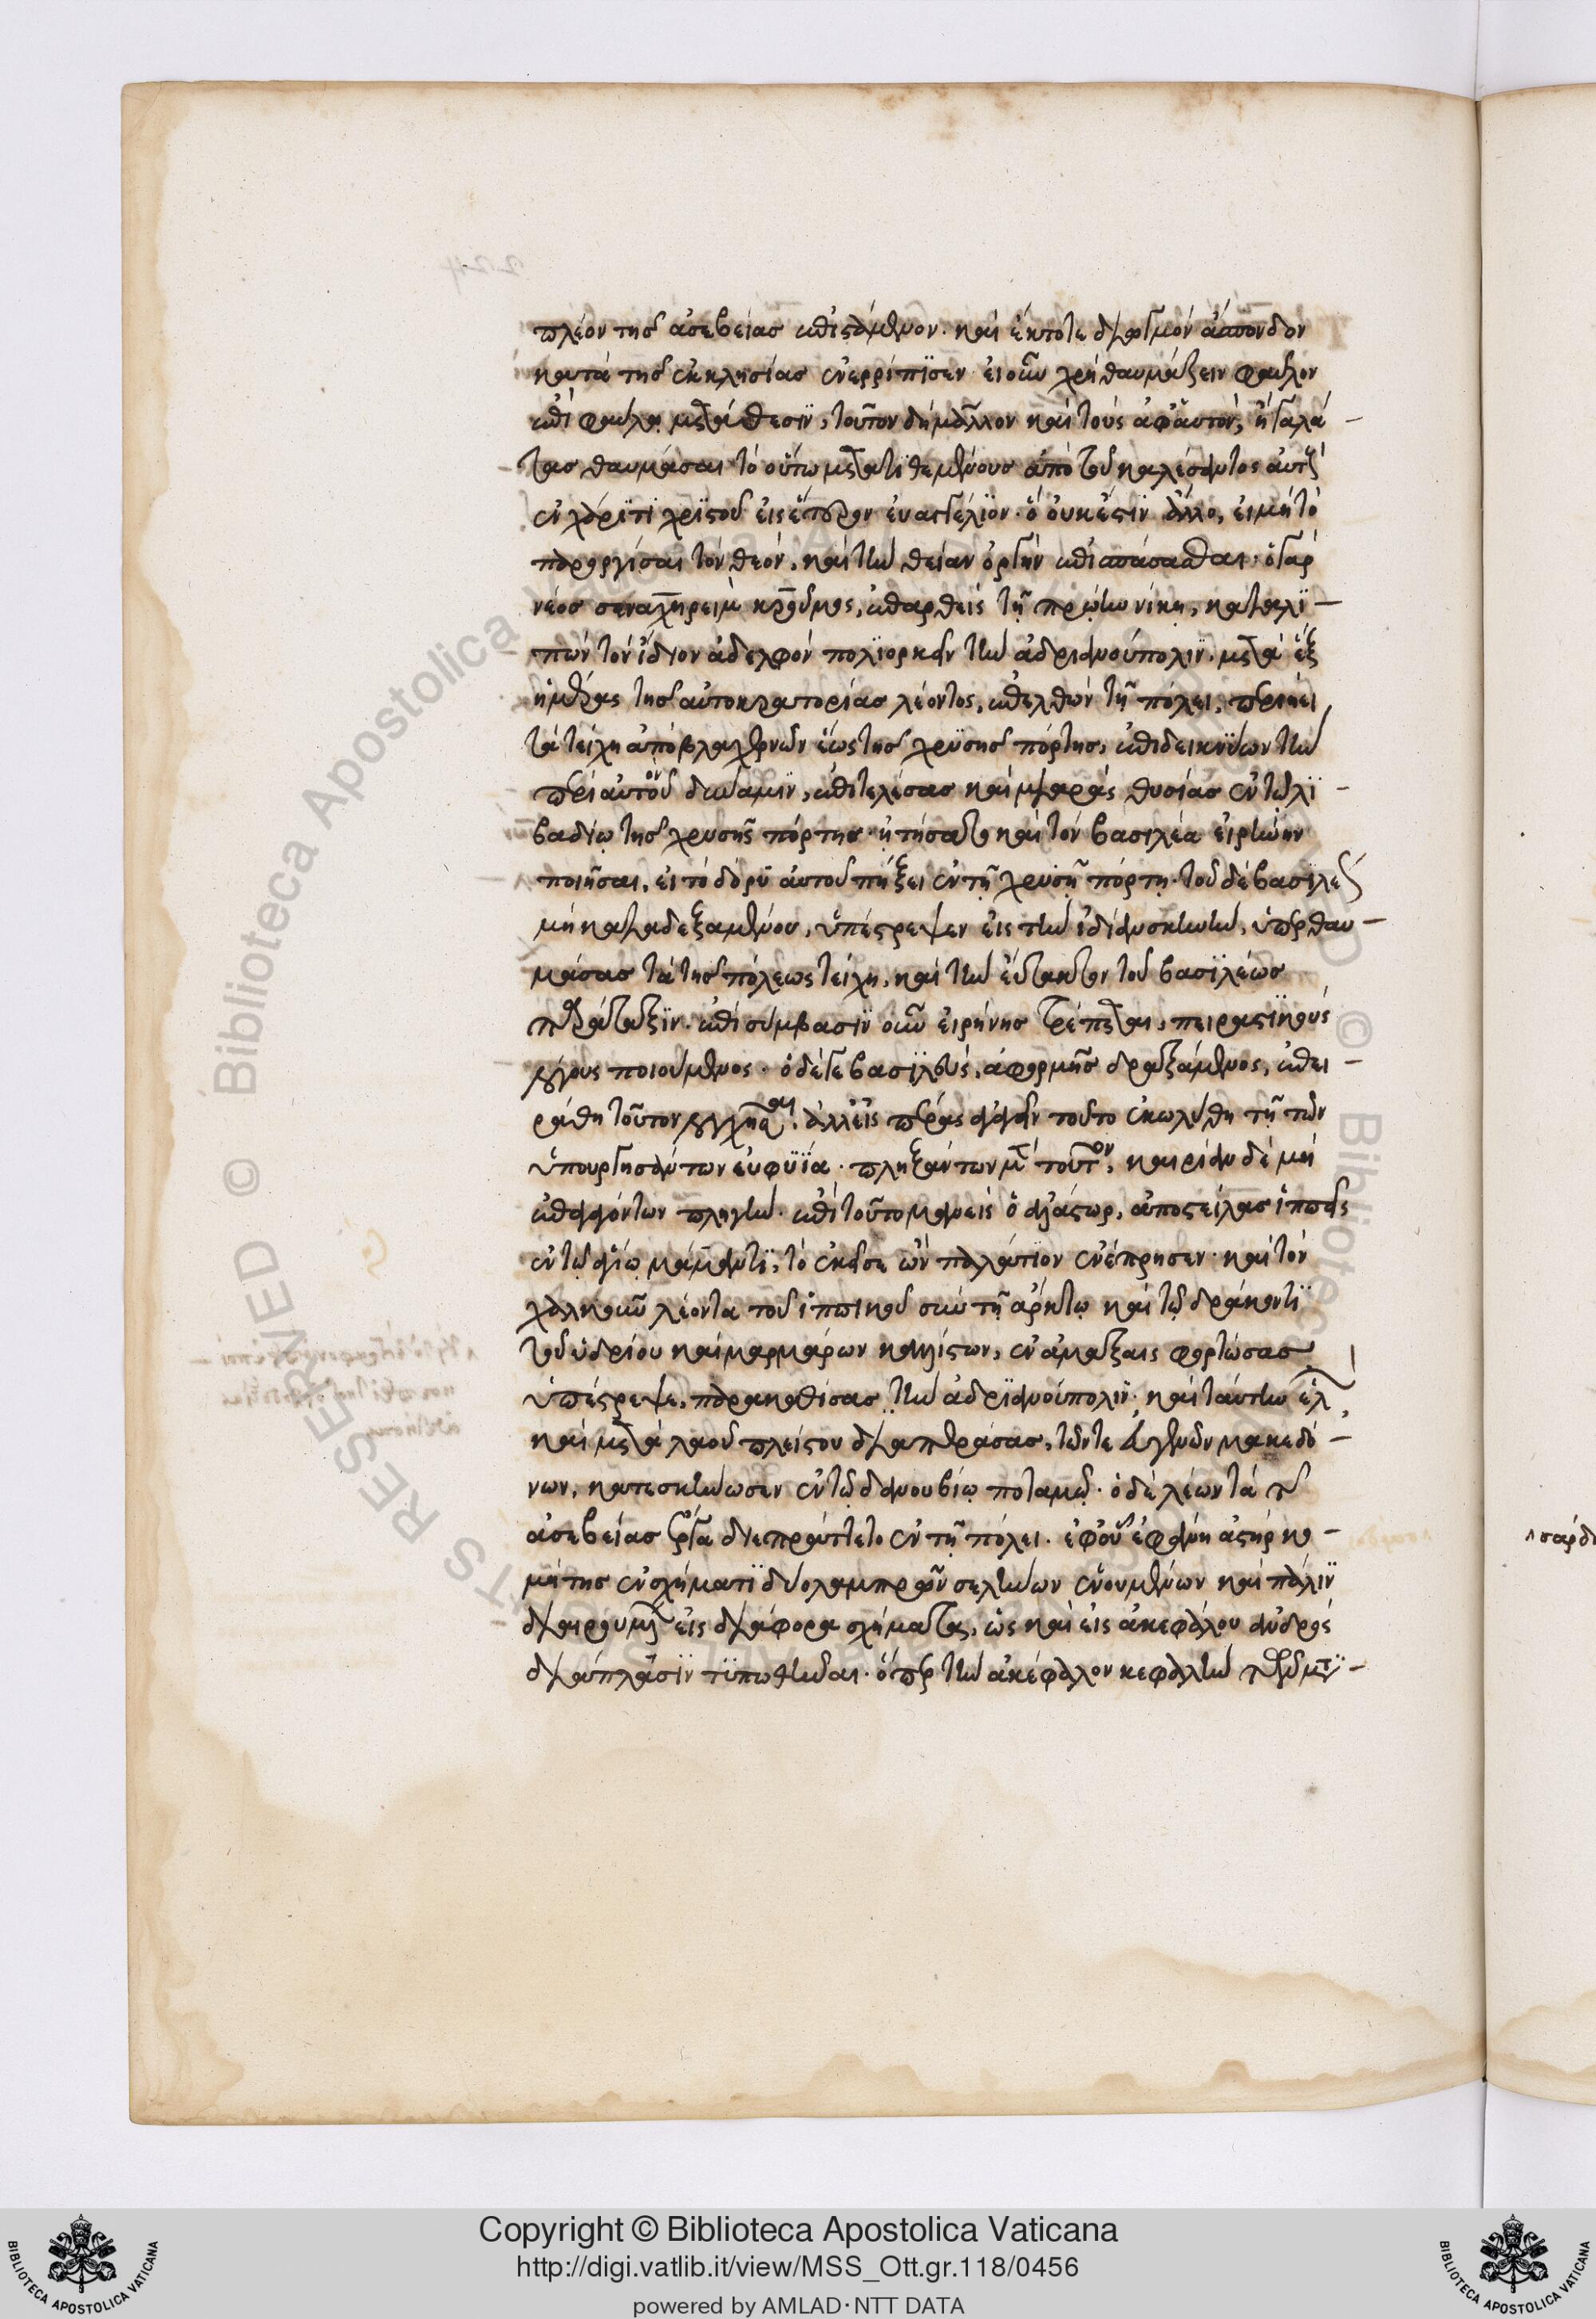 πλέον τῆς ἀσεβείας ἐπιστάμενον. καὶ ἔκτοτε διωγμὸν ἄσπονδον
κατὰ τῆς ἐκκλησίας ἐνερρίπισεν. εἰ οὖν χρὴ θαυμάζειν φαῦλον
ἐπὶ φαύλα μεταθέσιν, τοῦτον δὴ μᾶλλον καὶ τοὺς ἀφ' αὐτὸν, ἢ γαλά-
τας θαυμάσαι τὸ οὕτω μετατιθεμένους ἀπὸ τοῦ καλέσαντος αὐτοὺς
ἐν χάριτι χριστοῦ εἰς ἕτερον εὐαγγέλιον. ὃ οὐκ ἔστιν ἄλλο, εἰ μὴ τὸ
παροργίσαι τὸν θεόν, καὶ τὴν θείαν ὀργὴν ἐπισπάσασθαι. ὁ γὰρ
νέος σεναχηρεὶμ κροῦμος, ἐπαρθεὶς τῇ πρώτῳ νίκῃ, καταλι-
πὼν τὸν ἴδιον ἀδελφὸν πολιορκεῖν τὴν ἀδριανούπολιν. μετὰ ἓξ
ἡμέρας τῆς αὐτοκρατορίας λέοντος, ἐπελθὼν τῇ πόλει, περιῄει
τὰ τείχη ἀπὸ βλαχερνῶν ἕως τῆς χρυσῆς πόρτης, ἐπιδεικνύων τὴν
περὶ αὐτὸν δύναμιν, ἐπιτελέσας καὶ μιαρὰς θυσίας ἐν τῷ λι-
βαδίῳ τῆς χρυσῆς πόρτης. ᾐτήσατο καὶ τὸν βασιλέα εἰρήνην
ποιῆσαι, εἰ τὸ δόρυ αὐτοῦ πήξει ἐν τῇ χρυσῇ πόρτῃ. τοῦ δὲ βασιλέως
μὴ καταδεξαμένου, ὑπέστρεψεν εἰς τὴν ἰδίαν σκηνήν, ὑπερθαυ-
μάσας τὰ τῆς πόλεως τείχη, καὶ τὴν εὔτακτον τοῦ βασιλέως
παράταξιν. ἐπὶ σύμβασιν οὖν εἰρήνης τρέπεται, πειραστικοὺς
λόγους ποιούμενος. ὁ δέ γε βασιλεὺς, ἀφορμῆς δραξάμενος, ἐπει-
ράθη τοῦτον λογχῆσαι, ἀλλ' εἰς πέρας ἀγαγεῖν τοῦτο ἐκωλύθη τῇ τῶν
ὑπουργησάντων εὐφυΐα. πληξάντων μὲν τοῦτον, καιρίαν δὲ μὴ
ἐπαγαγόντων πληγήν. ἐπὶ τοῦτο μανεὶς ὁ ἀλάστωρ, ἀποστείλας ἱππεῖς
ἐν τῷ ἁγίῳ μάμαντι, τὸ ἐκεῖσε ὢν παλάτιον ἐνέπρησεν. καὶ τὸν
χαλκοῦν λέοντα τοῦ ἱππικοῦ σὺν τῇ ἄρκτῳ καὶ τῷ δράκοντι
τοῦ ὑδρίου καὶ μαρμάρων καλλίστων, ἐν ἁμάξαις φορτώσας
ὑπέστρεψε, παρακαθίσας τὴν ἀδριανούπολιν. καὶ ταύτην ἑλ
καὶ μετὰ λαοῦ πλείστου διαπεράσας, τῶν τε εὐγενῶν μακεδό-
νων, κατεσκήνωσεν ἐν τῷ δανουβίῳ ποταμῷ. ὁ δὲ λέων τὰ τῆς
ἀσεβείας ἔργα διεπράττετο ἐν τῇ πόλει. ἐφ' οὗ ἐφάνη ἀστὴρ κο-
μήτης ἐν σχήματι δύο λαμπρῶν σελήνων ἑνουμένων καὶ πάλιν
διαιρουμένων εἰς διάφορα σχήματα, ὡς καὶ εἰς ἀκεφάλου ἀνδρὸς
διάπλασιν τυπωθῆναι. ὅπερ τὴν ἀκέφαλον κεφαλὴν
σάρδ
Copyright © Biblioteca Apostolica Vaticana
http://digi.vatlib.it/view/MSS_Ott.gr.118/0456
powered by AMLAD·NTT DATA
BIBLIOTECA APOSTOLICA VATICANA
BIBLIOTECA APOSTOLICA VATICANA